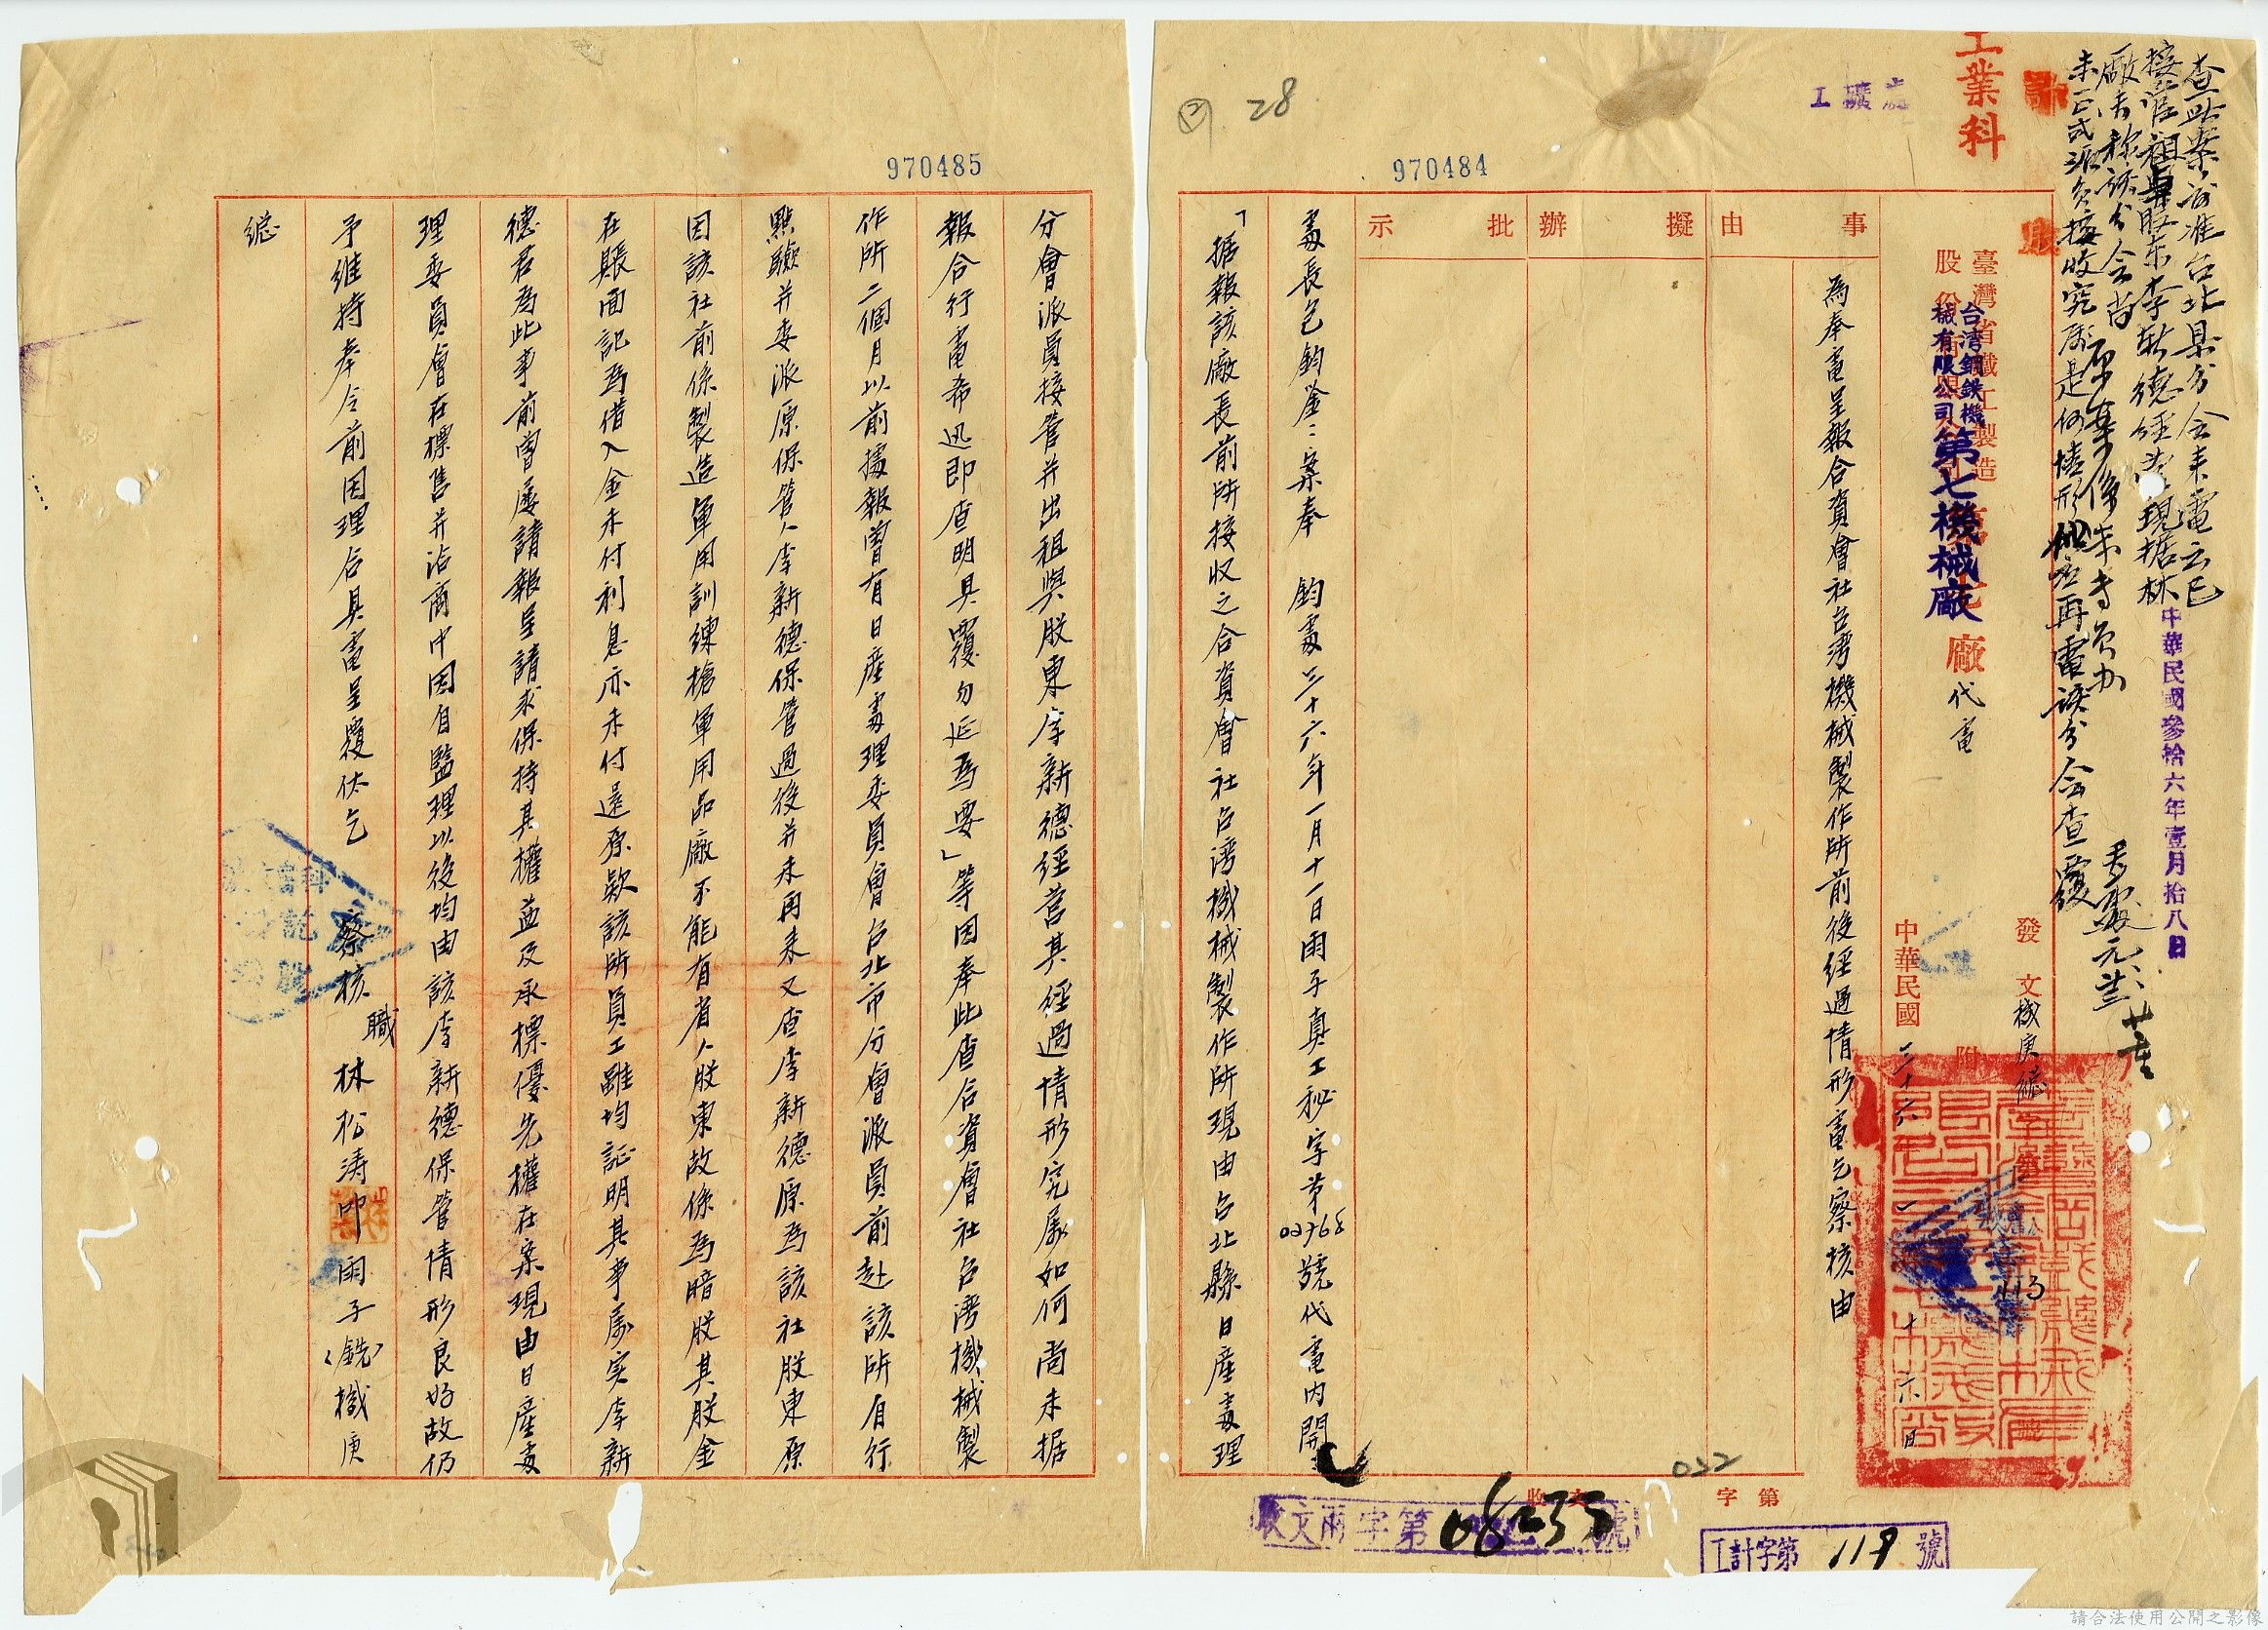 查此案前准台北縣分会来電云已
接管租與股东李新德經營現据林
廠長称該分会尚
未正式派員接收究屬是何情形拟應再電該分会查覆
原案係朱專員办
中華民國參拾六年壹月拾八日
工業科
工礦處
臺灣省鐵工製造
股份有限公司
台湾鋼鉄機
械有限公司
第七機械廠
廠
代電
發文機庚總字第113號
附
中華民國三十六一十六日
事由
為奉電呈報合資會社台湾機械製作所前後經過情形電乞察核由
擬辦
批示
處長包鈞鉴：案奉　鈞處三十六年一月十一日雨子真工秘字第02768號代電内開
「据報該廠長前所接收之合資會社台湾機械製作所現由台北縣日產處理
970484
28
022
收文
字第
收文雨字第08235號
工計字第119號
970485
分會派員接管并出租與股東李新德經营其經過情形究屬如何尚未据
報合行電希迅即查明具覆勿延爲要」等因奉此查合資會社台湾機械製
作所二個月以前據報曾有日產處理委員會台北市分會派員前赴該所自行
點驗并委派原保管人李新德保管過後并未再來又查李新德原為該社股東原
因該社前係製造軍用訓練槍軍用品廠不能有省人股東故係為暗股其股金
在賬面記爲借入金未付利息亦未付還原欵該所員工雖均証明其事屬实李新
德君為此事前曾屡請報呈請求保持其權益及承標優先權在案現由日產處
理委員會在標售并洽商中因自監理以後均由該李新德保管情形良好故仍
予維持奉令前因理合具電呈覆伏乞　察核　職林松涛叩雨子(銑)機庚
總
請合法使用公開之影像